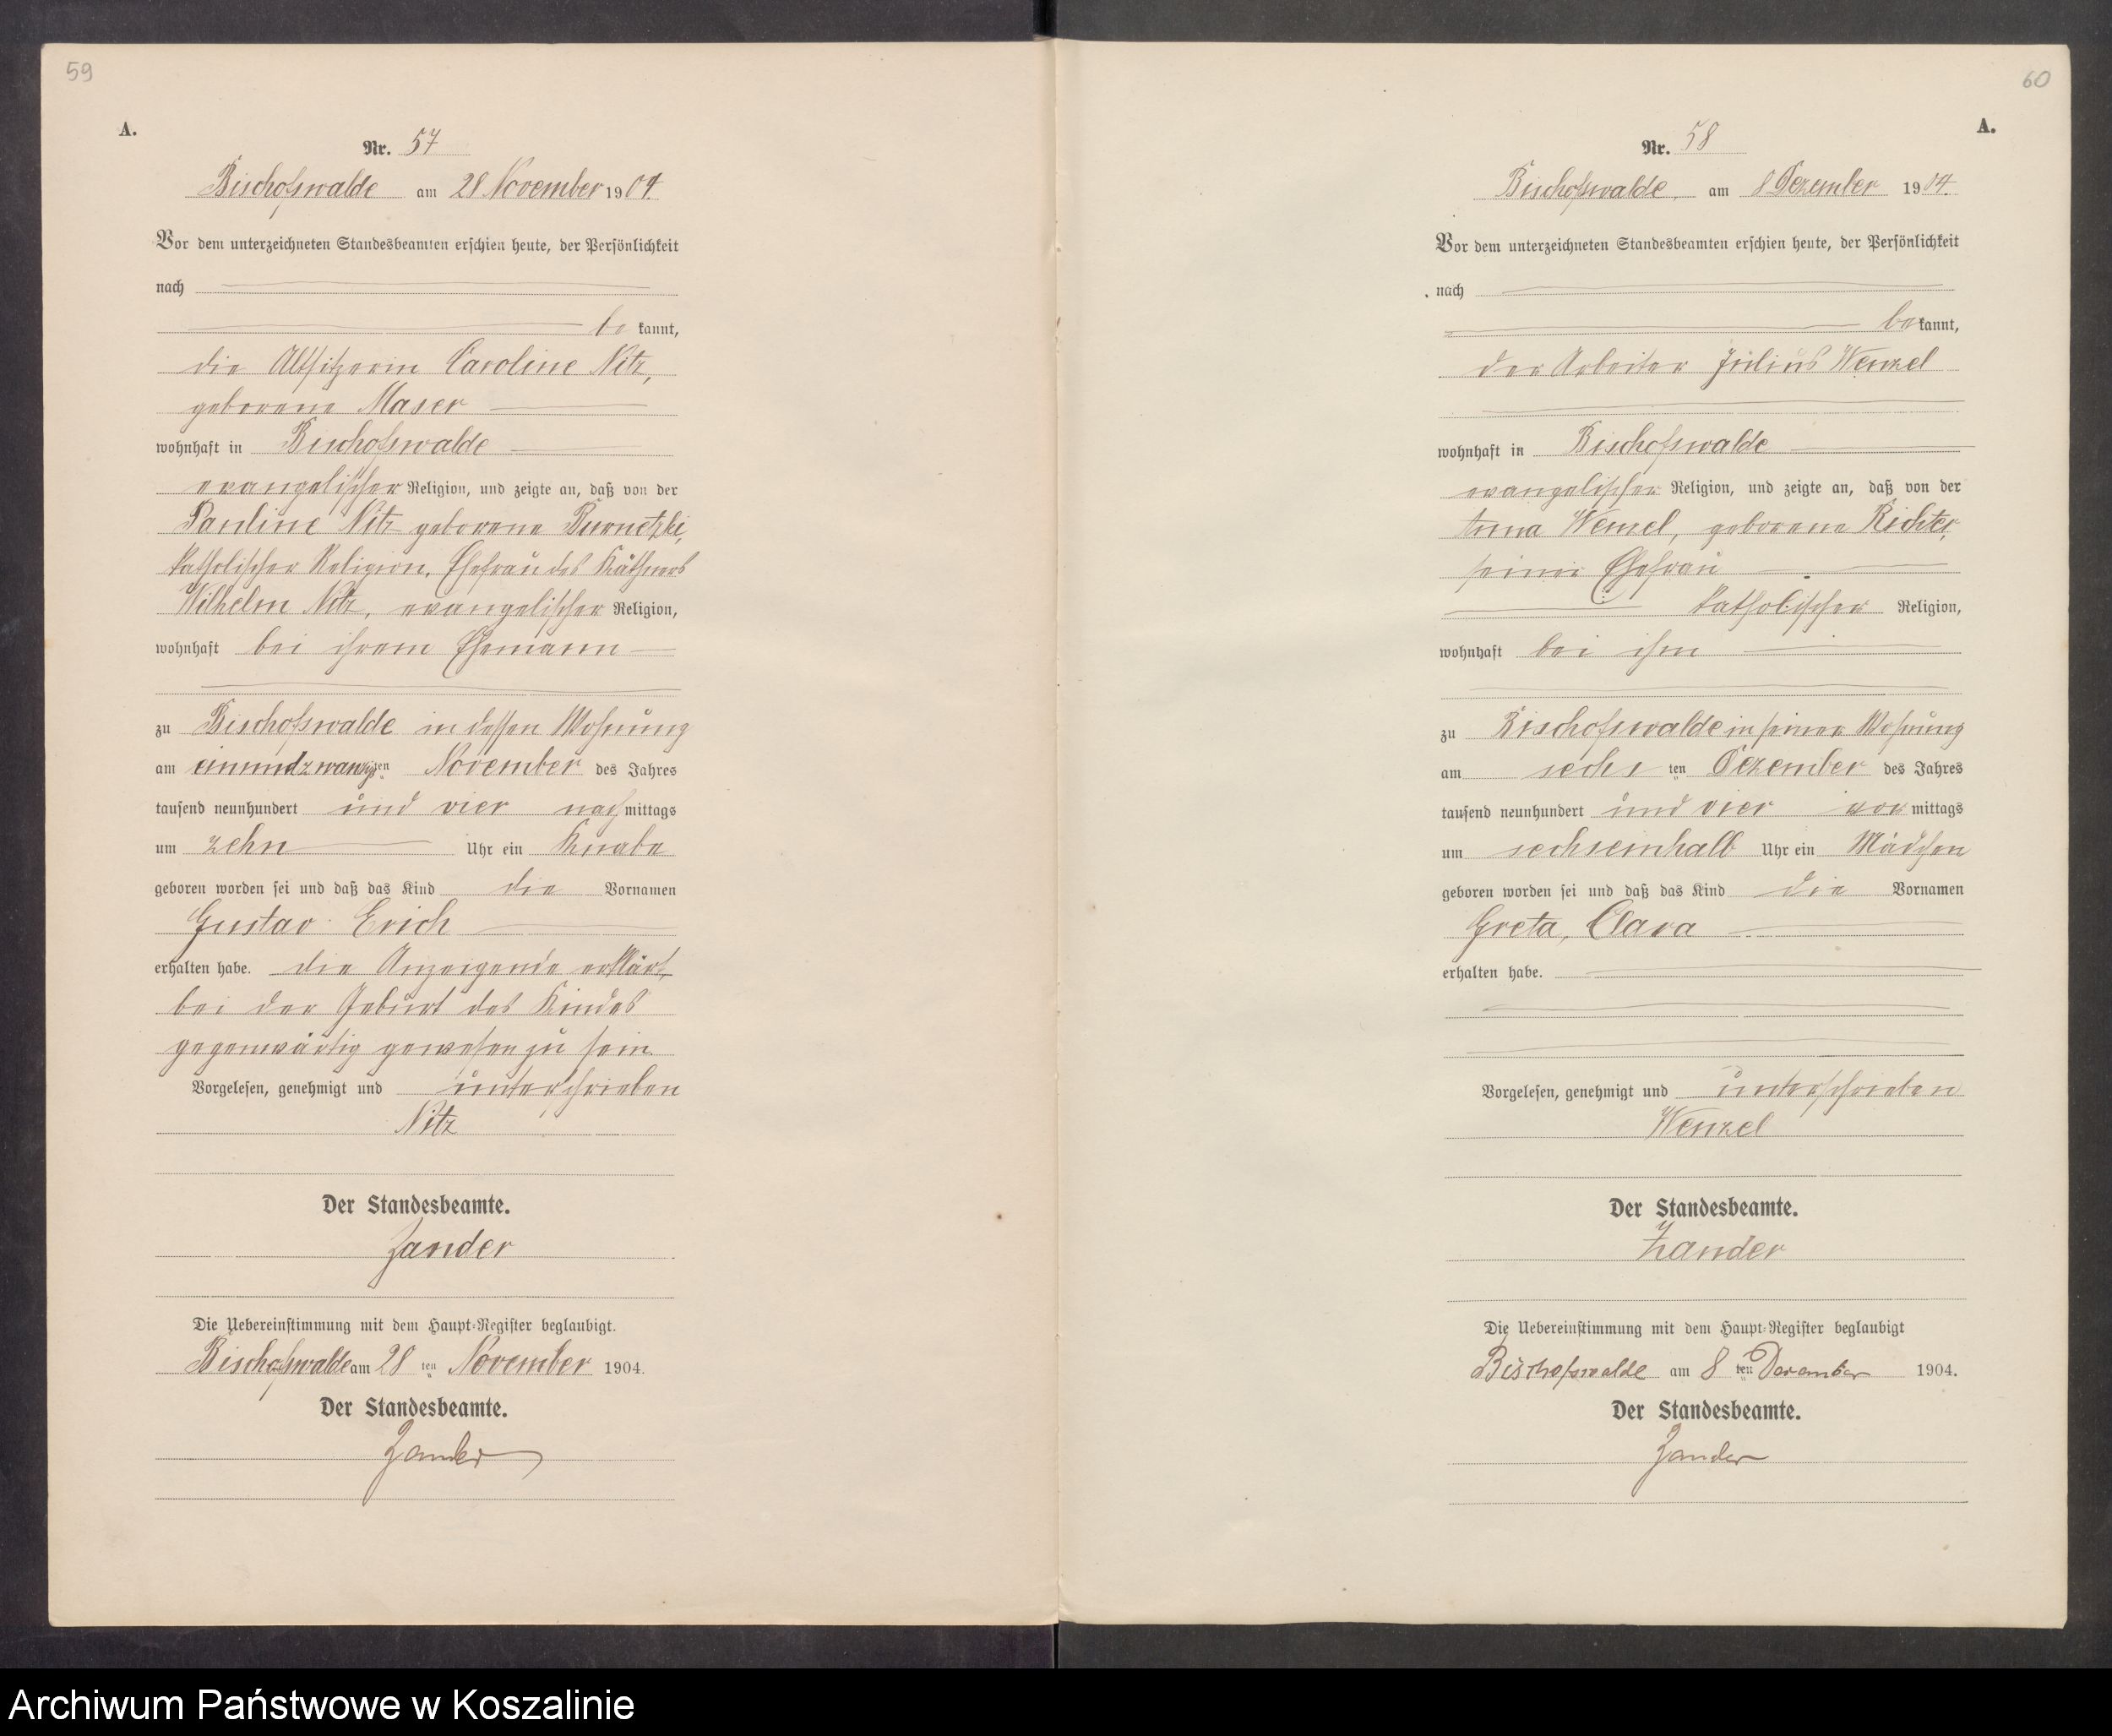 59
A.
Nr. 57
Bischofswalde am 28 November 1904.
Vor dem unterzeichneten Standesbeamten erschien heute, der Persönlichkeit
nach
be kannt,
die Altsitzerin Caroline Nitz,
geborene Maser
wohnhaft in Bischofswalde
evangelischer Religion, und zeigte an, daß von der
Pauline Nitz geborene Burnetzki,
katholischer Religion, Ehefrau des Käthners
Wilhelm Nitz, evangelischer Religion,
wohnhaft bei ihrem Ehemann
zu Bischofswalde in dessen Wohnung
am einundzwanzigsten November des Jahres
tausend neunhundert und vier nachmittags
um zehn Uhr ein Knabe
geboren worden sei und daß das Kind die Vornamen
Gustav Erich
erhalten habe. die Anzeigende erklärt,
bei der Geburt des Kindes
gegenwärtig gewesen zu sein.
Vorgelesen, genehmigt und unterschrieben
Nitz
Der Standesbeamte.
Zander
Die Uebereinstimmung mit dem Haupt-Register beglaubigt.
Bischofswalde am 28 ten November 1904.
Der Standesbeamte.
Zander
60
A.
Nr. 58
Bischofswalde, am 8 Dezember 1904.
Vor dem unterzeichneten Standesbeamten erschien heute, der Persönlichkeit
nach
bekannt,
der Arbeiter Julius Wenzel
wohnhaft in Bischofswalde
evangelischer Religion, und zeigte an, daß von der
Anna Wenzel, geborene Richter,
seiner Ehefrau
katholischer Religion,
wohnhaft bei ihm
zu Bischofswalde in seiner Wohnung
am sechs ten Dezember des Jahres
tausend neunhundert und vier vor mittags
um sechseinhalb Uhr ein Mädchen
geboren worden sei und daß das Kind die Vornamen
Greta, Clara
erhalten habe.
Vorgelesen, genehmigt und unterschrieben
Wenzel
Der Standesbeamte.
Zander
Die Uebereinstimmung mit dem Haupt-Register beglaubigt
Bischofswalde am 8 ten Dezember 1904.
Der Standesbeamte.
Zander
Archiwum Państwowe w Koszalinie